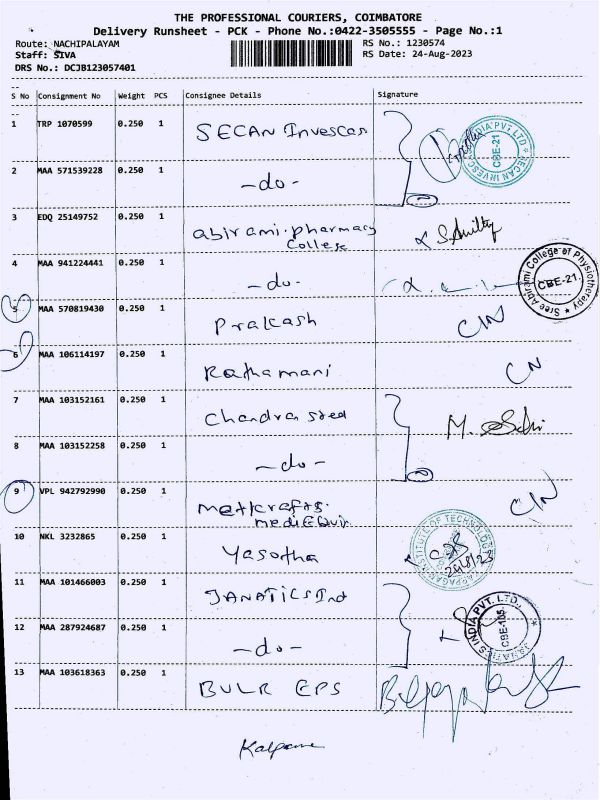 THE PROFESSIONAL COURIERS, COIMBATORE
Delivery Runsheet - PCK - Phone No.:0422-3505555 - Page No.:1
Route: NACHIPALAYAM RS No.: 1230574
Staff: SIVA RS Date: 24-Aug-2023
DRS No.: DCJB123057401
S No Consignment No Weight PCS Consignee Details Signature
1 TRP 1070599 0.250 1 SECAN Invescas
2 MAA 571539228 0.250 1 -do-
RECAN INVESCAS INDIA PVT LTD CBE-21
3 EDQ 25149752 0.250 1 abirami.pharmacy
College
4 MAA 941224441 0.250 1 -do-
Sree Abirami College of Physiotherapy CBE-21.
5 MAA 570819430 0.250 1 Prakash CIN
6 MAA 106114197 0.250 1 Rathamani CN
7 MAA 103152161 0.250 1 Chandra steel M.
8 MAA 103152258 0.250 1 -do-
9 VPL 942792990 0.250 1 CIN
10 NKL 3232865 0.250 1 Yasotha
INSTITUTE OF TECHNOLOGY 24/8/23
11 MAA 101466003 0.250 1 JANATICS Ind
12 MAA 287924687 0.250 1 -do-
JANATICS INDIA PVT. LTD. CBE-105
13 MAA 103618363 0.250 1 BULK EPS
Kalpana